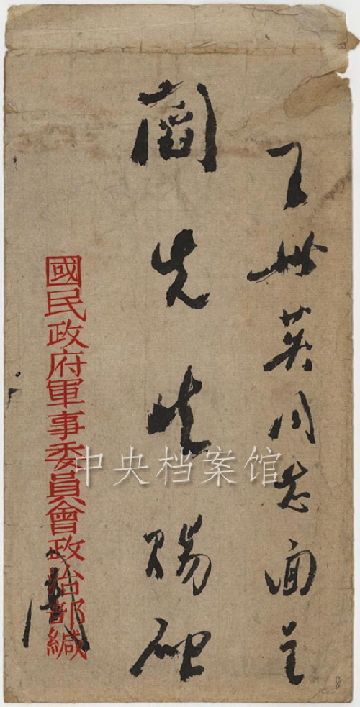 王世英同志面呈
閻先生賜啟
國民政府軍事委員會政治部緘
周
中央档案馆